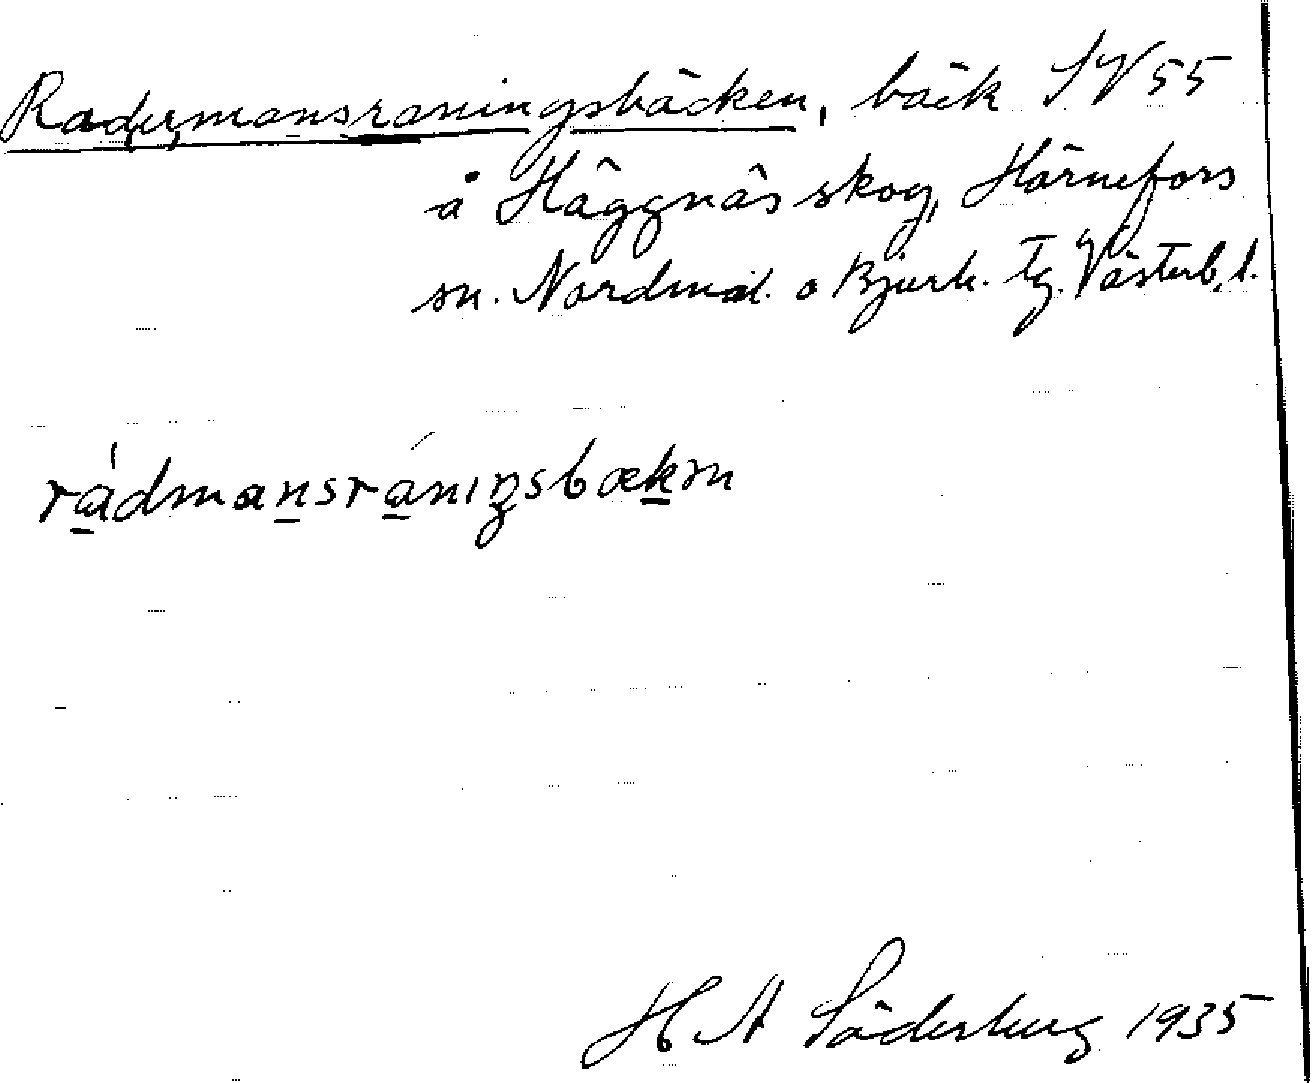 Radermansraningsbäcken, bäck SV 55
å Häggnäs skog, Hörnefors
sn. Nordmal. o Bjurh. tg. Västerb. l.
rådmansråningsbækən
H A Söderberg 1935